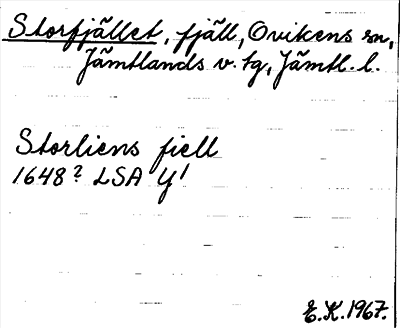 Storfjället, fjäll, Ovikens sn,
Jämtlands v. tg, Jämtl. l.
Storliens fiell
1648? LSA Y'
E.K. 1967.